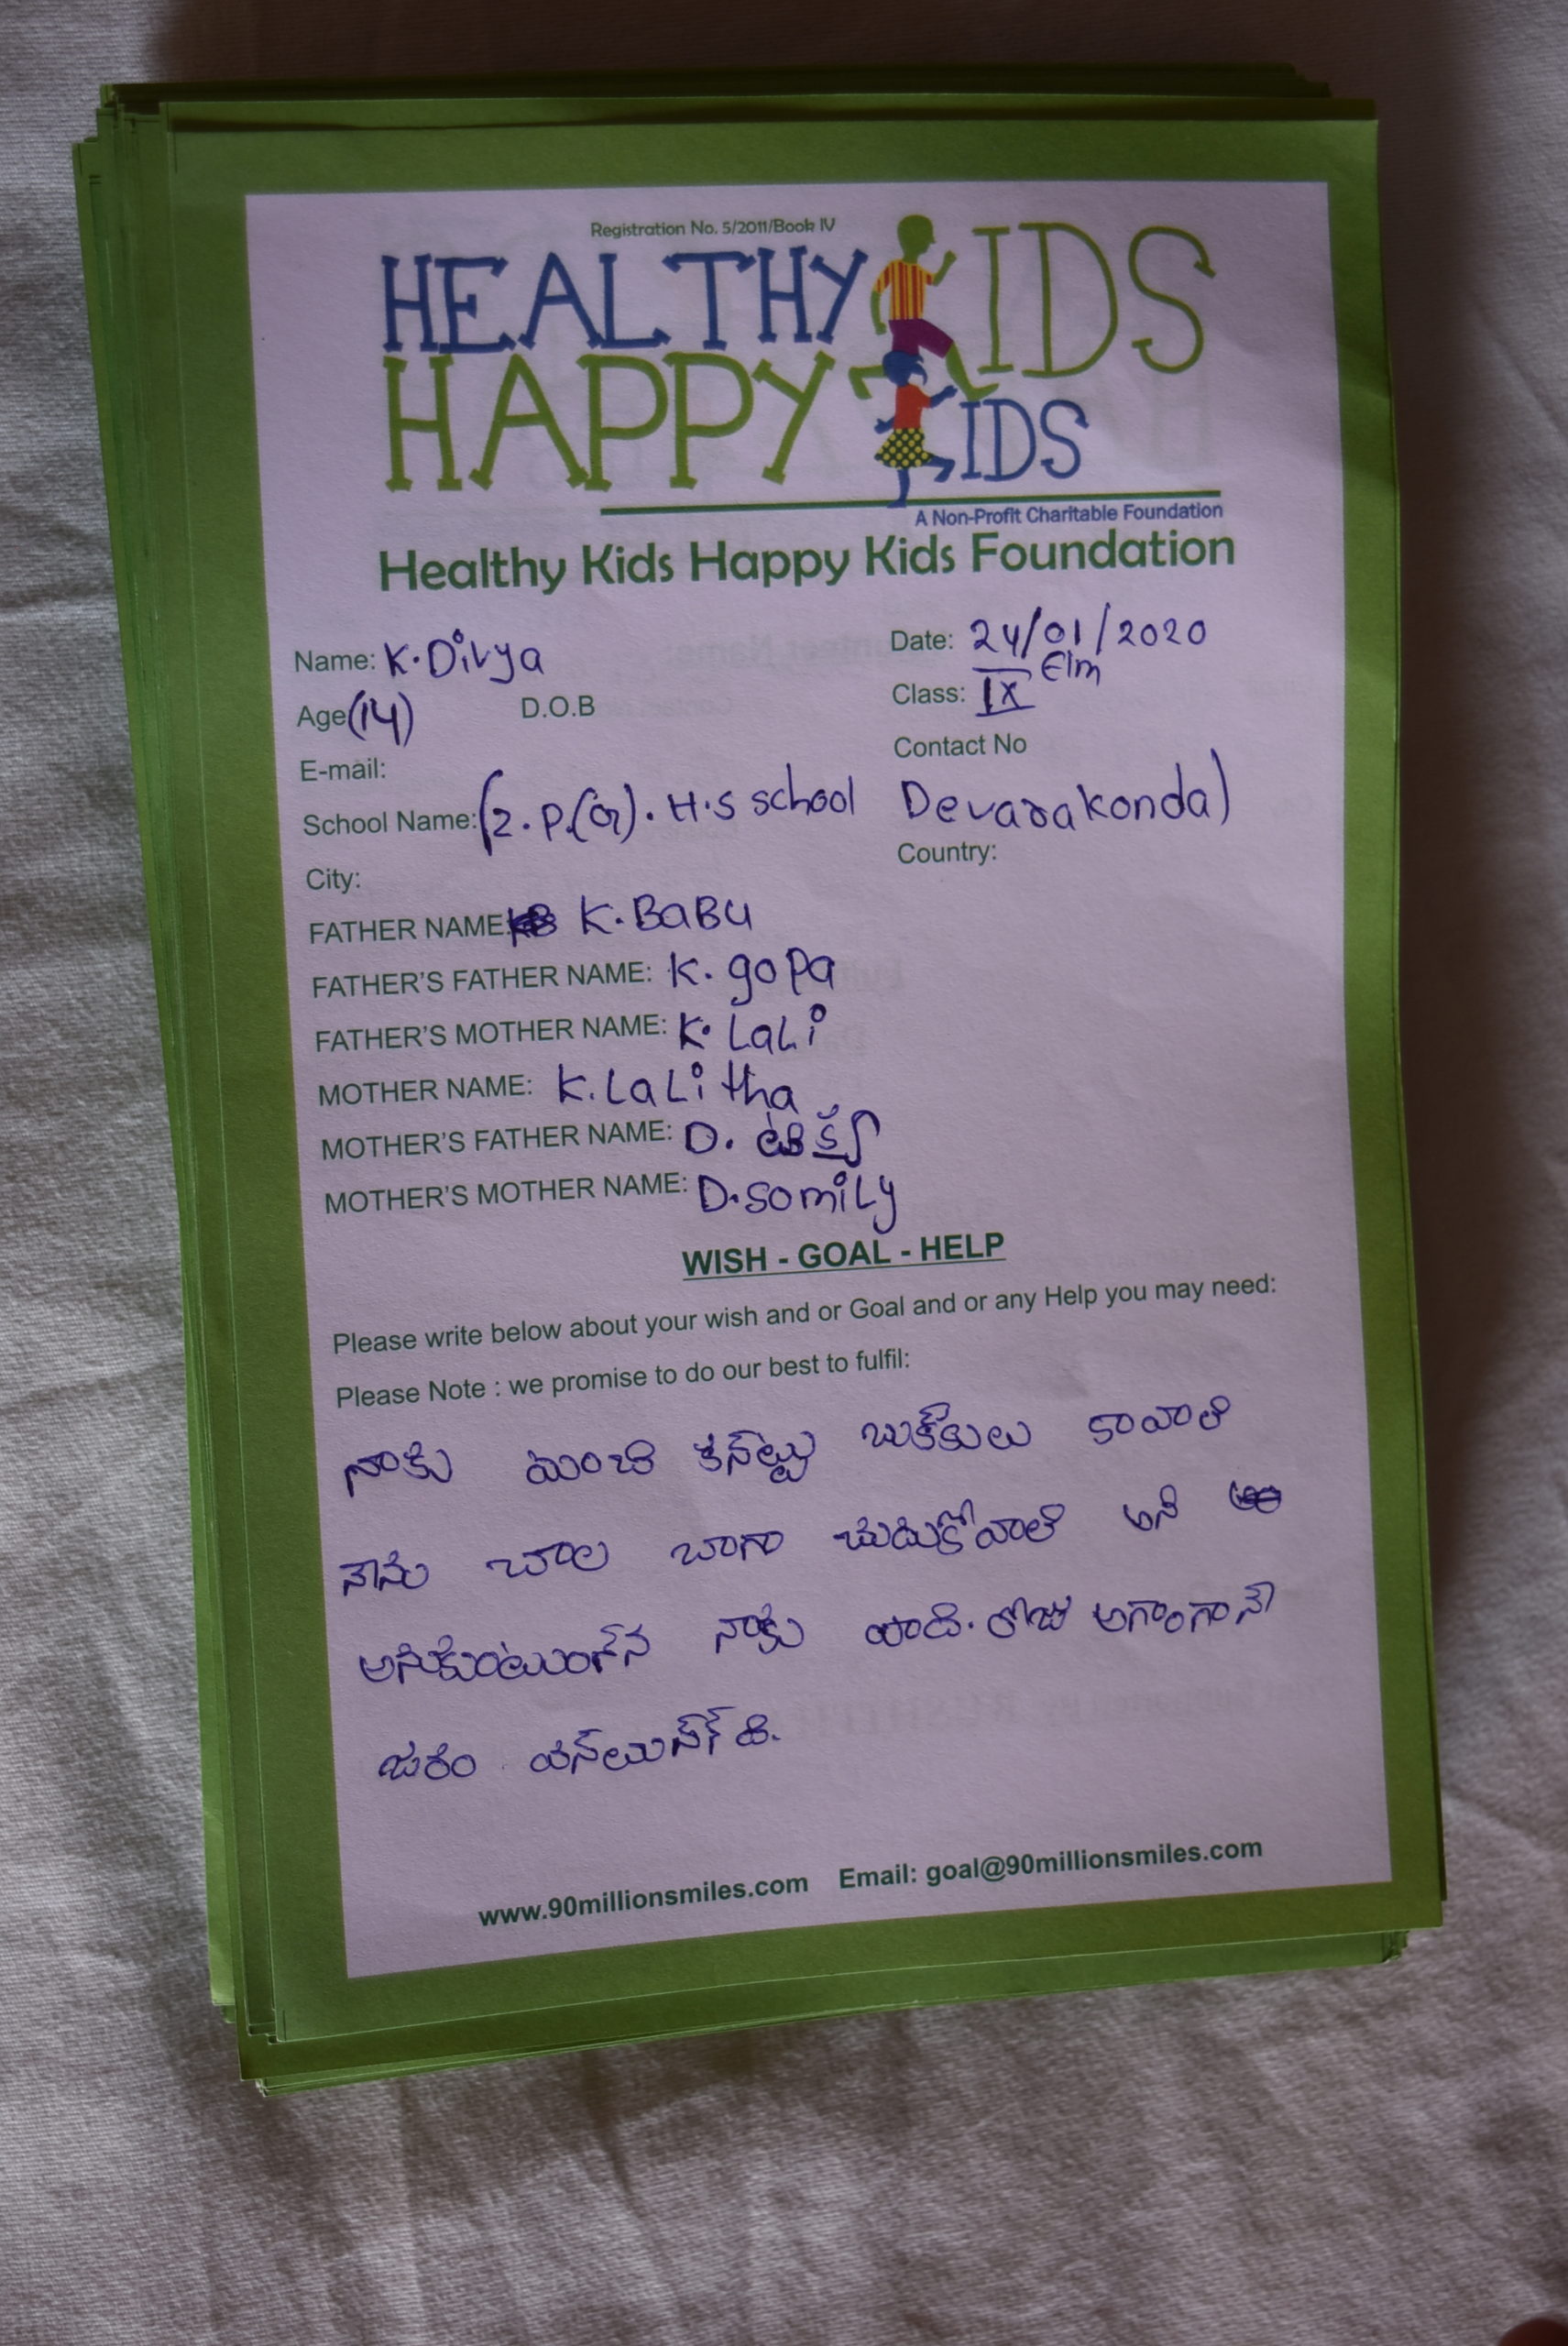 Registration No. 5/2011/Book IV
HEALTHY KIDS
HAPPY KIDS
A Non-Profit Charitable Foundation
Healthy Kids Happy Kids Foundation
Name: K.Divya Date: 24/01/2020
Age (14) D.O.B Class: IX E/m
E-mail: Contact No
School Name: (Z.P.(G). H.S school Devarakonda)
City: Country:
FATHER NAME: K.BaBu
FATHER'S FATHER NAME: K. gopa
FATHER'S MOTHER NAME: K. LaLi
MOTHER NAME: K.LaLitha
MOTHER'S FATHER NAME: D.
MOTHER'S MOTHER NAME: D.somiLy
WISH - GOAL - HELP
Please write below about your wish and or Goal and or any Help you may need:
Please Note : we promise to do our best to fulfil:
నాకు మంచి బుక్కులు కావాలి
నేను చాల బాగా చుదుకోవాలి అని
నాకు రోజు
జరం
www.90millionsmiles.com Email: goal@90millionsmiles.com